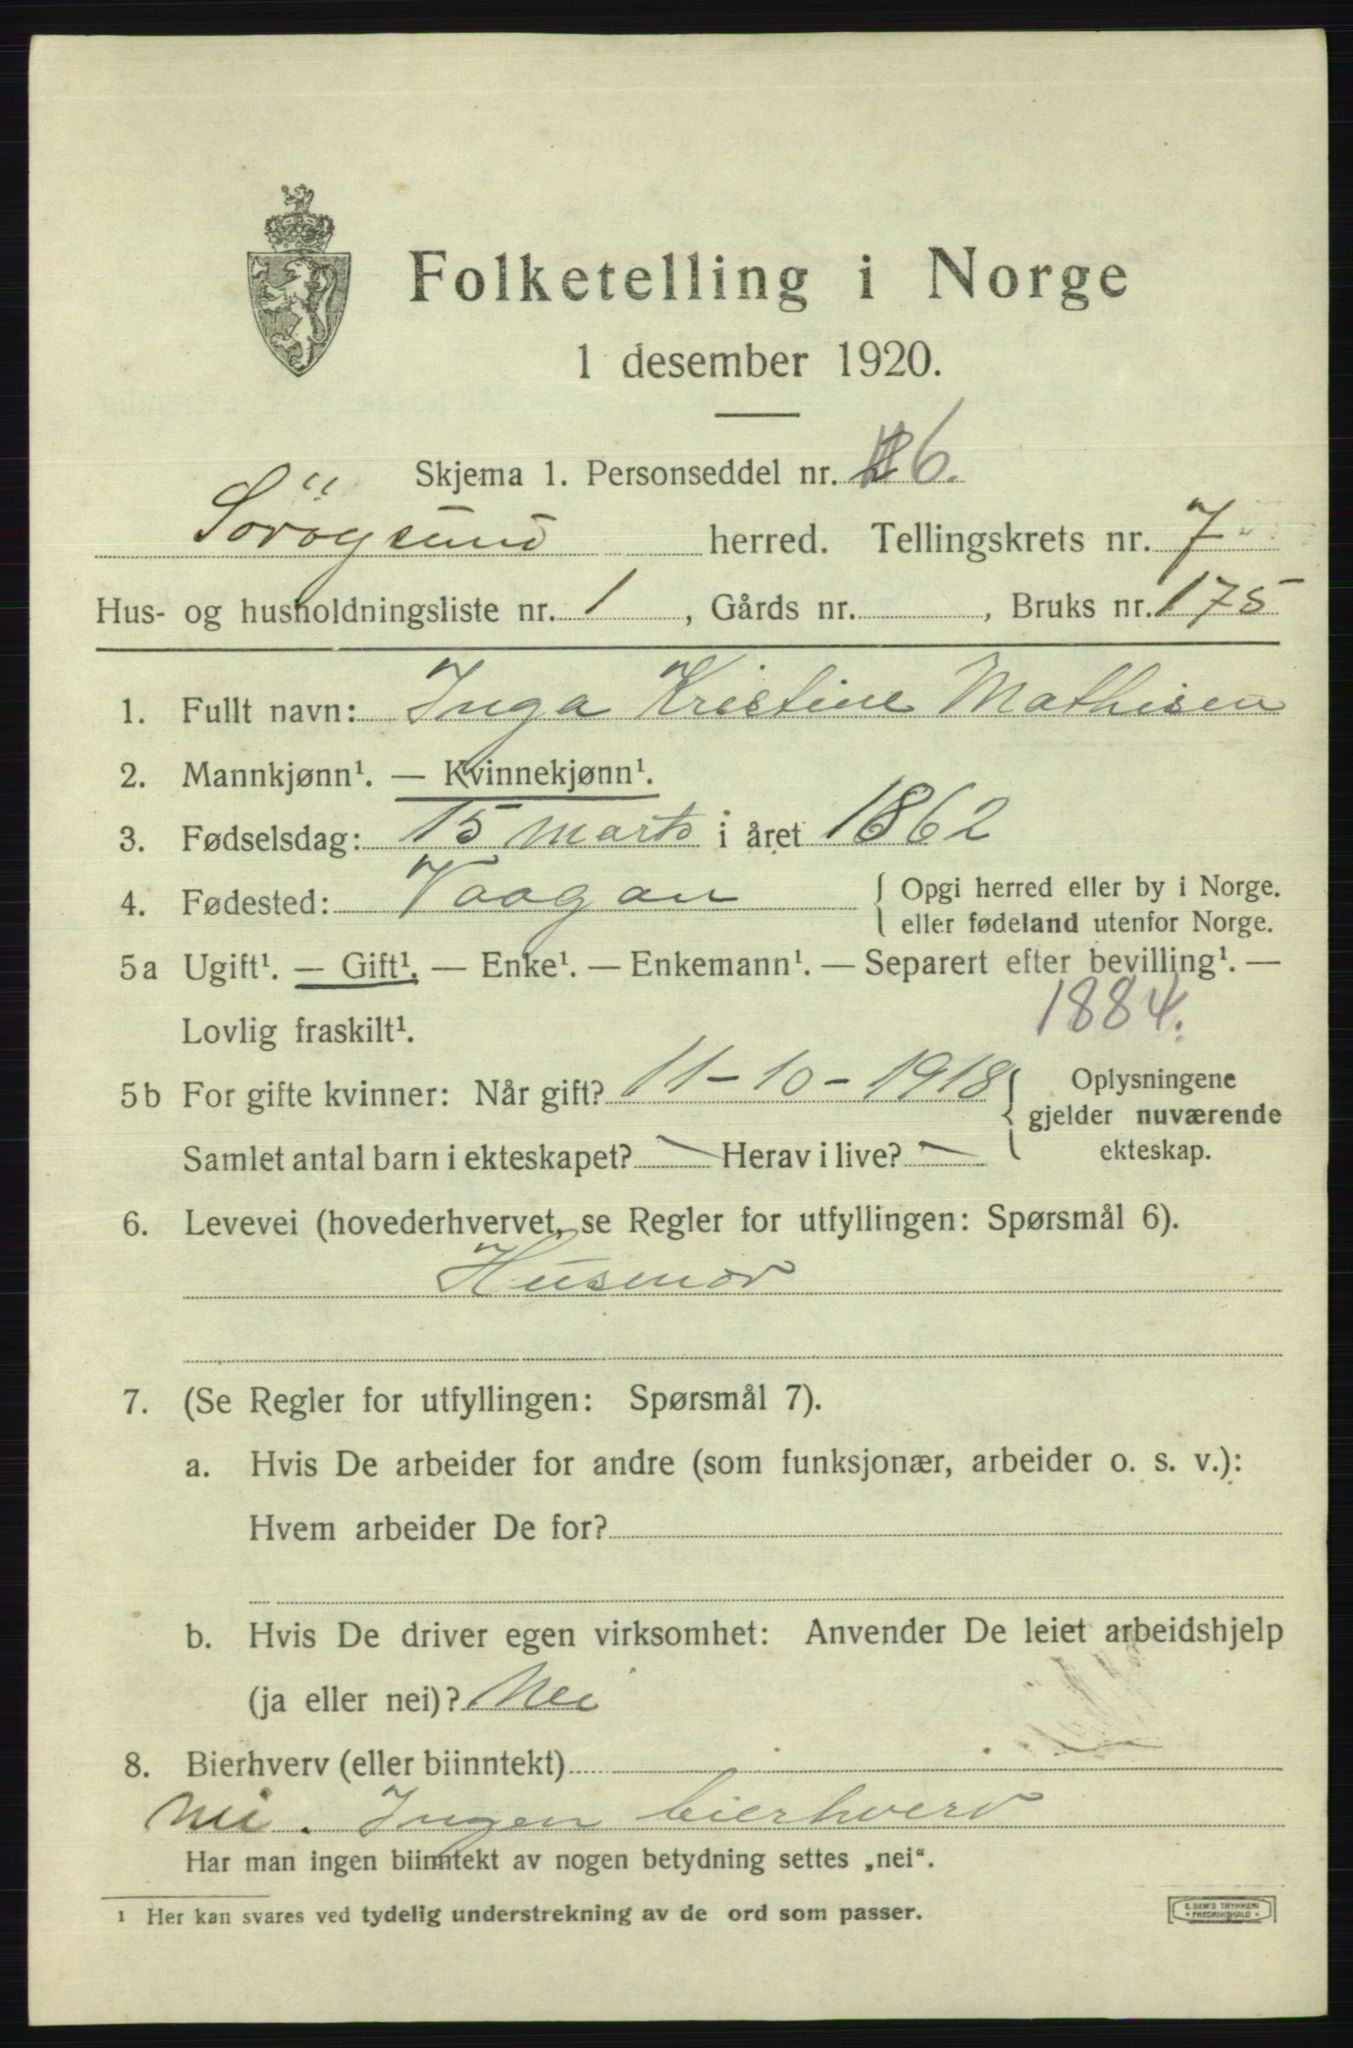 Folketelling i Norge
1 desember 1920.
Skjema 1. Personseddel nr. 6.
Söröysund herred. Tellingskrets nr. 7
Hus- og husholdningsliste nr. 1, Gårds nr. , Bruks nr. 175
1. Fullt navn: Inga Kristine Mathisen
2. Mannkjønn¹. — Kvinnekjønn¹.
3. Fødselsdag: 15 marts i året 1862
4. Fødested: Vaagan { Opgi herred eller by i Norge.
eller fødeland utenfor Norge.
5a Ugift¹. — Gift¹. — Enke¹. — Enkemann¹. — Separert efter bevilling¹. —
Lovlig fraskilt¹. 1884.
5b For gifte kvinner: Når gift? 11-10-1918 { Oplysningene
gjelder nuværende
Samlet antal barn i ekteskapet? — Herav i live? — ekteskap.
6. Levevei (hovederhvervet, se Regler for utfyllingen: Spørsmål 6).
Husmor
7. (Se Regler for utfyllingen: Spørsmål 7).
a. Hvis De arbeider for andre (som funksjonær, arbeider o. s. v.):
Hvem arbeider De for?
b. Hvis De driver egen virksomhet: Anvender De leiet arbeidshjelp
(ja eller nei)? Nei
8. Bierhverv (eller biinntekt)
Nei. Ingen bierhverv
Har man ingen biinntekt av nogen betydning settes „nei“.
¹ Her kan svares ved tydelig understrekning av de ord som passer.
E. SEM'S TRYKKERI
FREDRIKSHALD